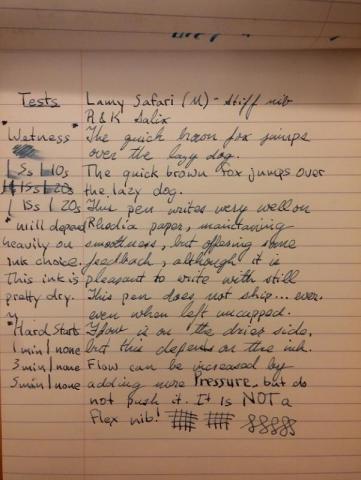 Tests
Lamy Safari (M) - Stiff nib
R & K Salix
"Wetness"
The quick brown fox jumps
over the lazy dog.
5s 10s
The quick brown fox jumps over
15s 20s
the lazy dog.
15s 20s
This pen writes very well on
*will depend
Rhodia paper, maintaining
heavily on
smoothness, but offering some
ink choice.
feedback, although it is
This ink is
pleasant to write with still
pretty dry.
This pen does not skip... ever.
even when left uncapped.
"Hard Starts
Flow is on the drier side,
1 min | none
but this depends on the ink.
3 min | none
Flow can be increased by
5 min | none
adding more Pressure, but do
not push it. It is NOT a
flex nib!